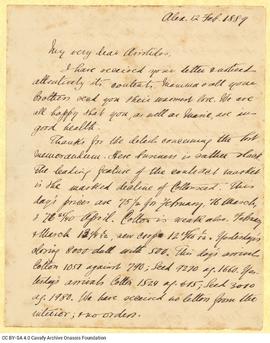 Alex. 12 Feb. 1889
My very dear Aristides.
I have received your letter & noticed
attentively its contents. Mamma & all your
brothers send you their warmest love. We are
all happy that you as well as Marie are in
good health.
Thanks for the details concerning the
memorandum. Here business is rather
the leading feature of the market
is the marked decline of Cottonseed. This
day's prices are 75/ for February, 76 March,
& April. Cotton is weak also. February
& March new crop Yesterday's
closing dull with 500. This day's arrivals
Cotton 1051 against 790; Seed 7220 ag. 1660. Yes-
terday's arrivals Cotton 1529 ag. 615; Seed 3010
ag. 1980. We have received no letters from the
interior, & no orders.
CC BY-SA 4.0 Cavafy Archive Onassis Foundation